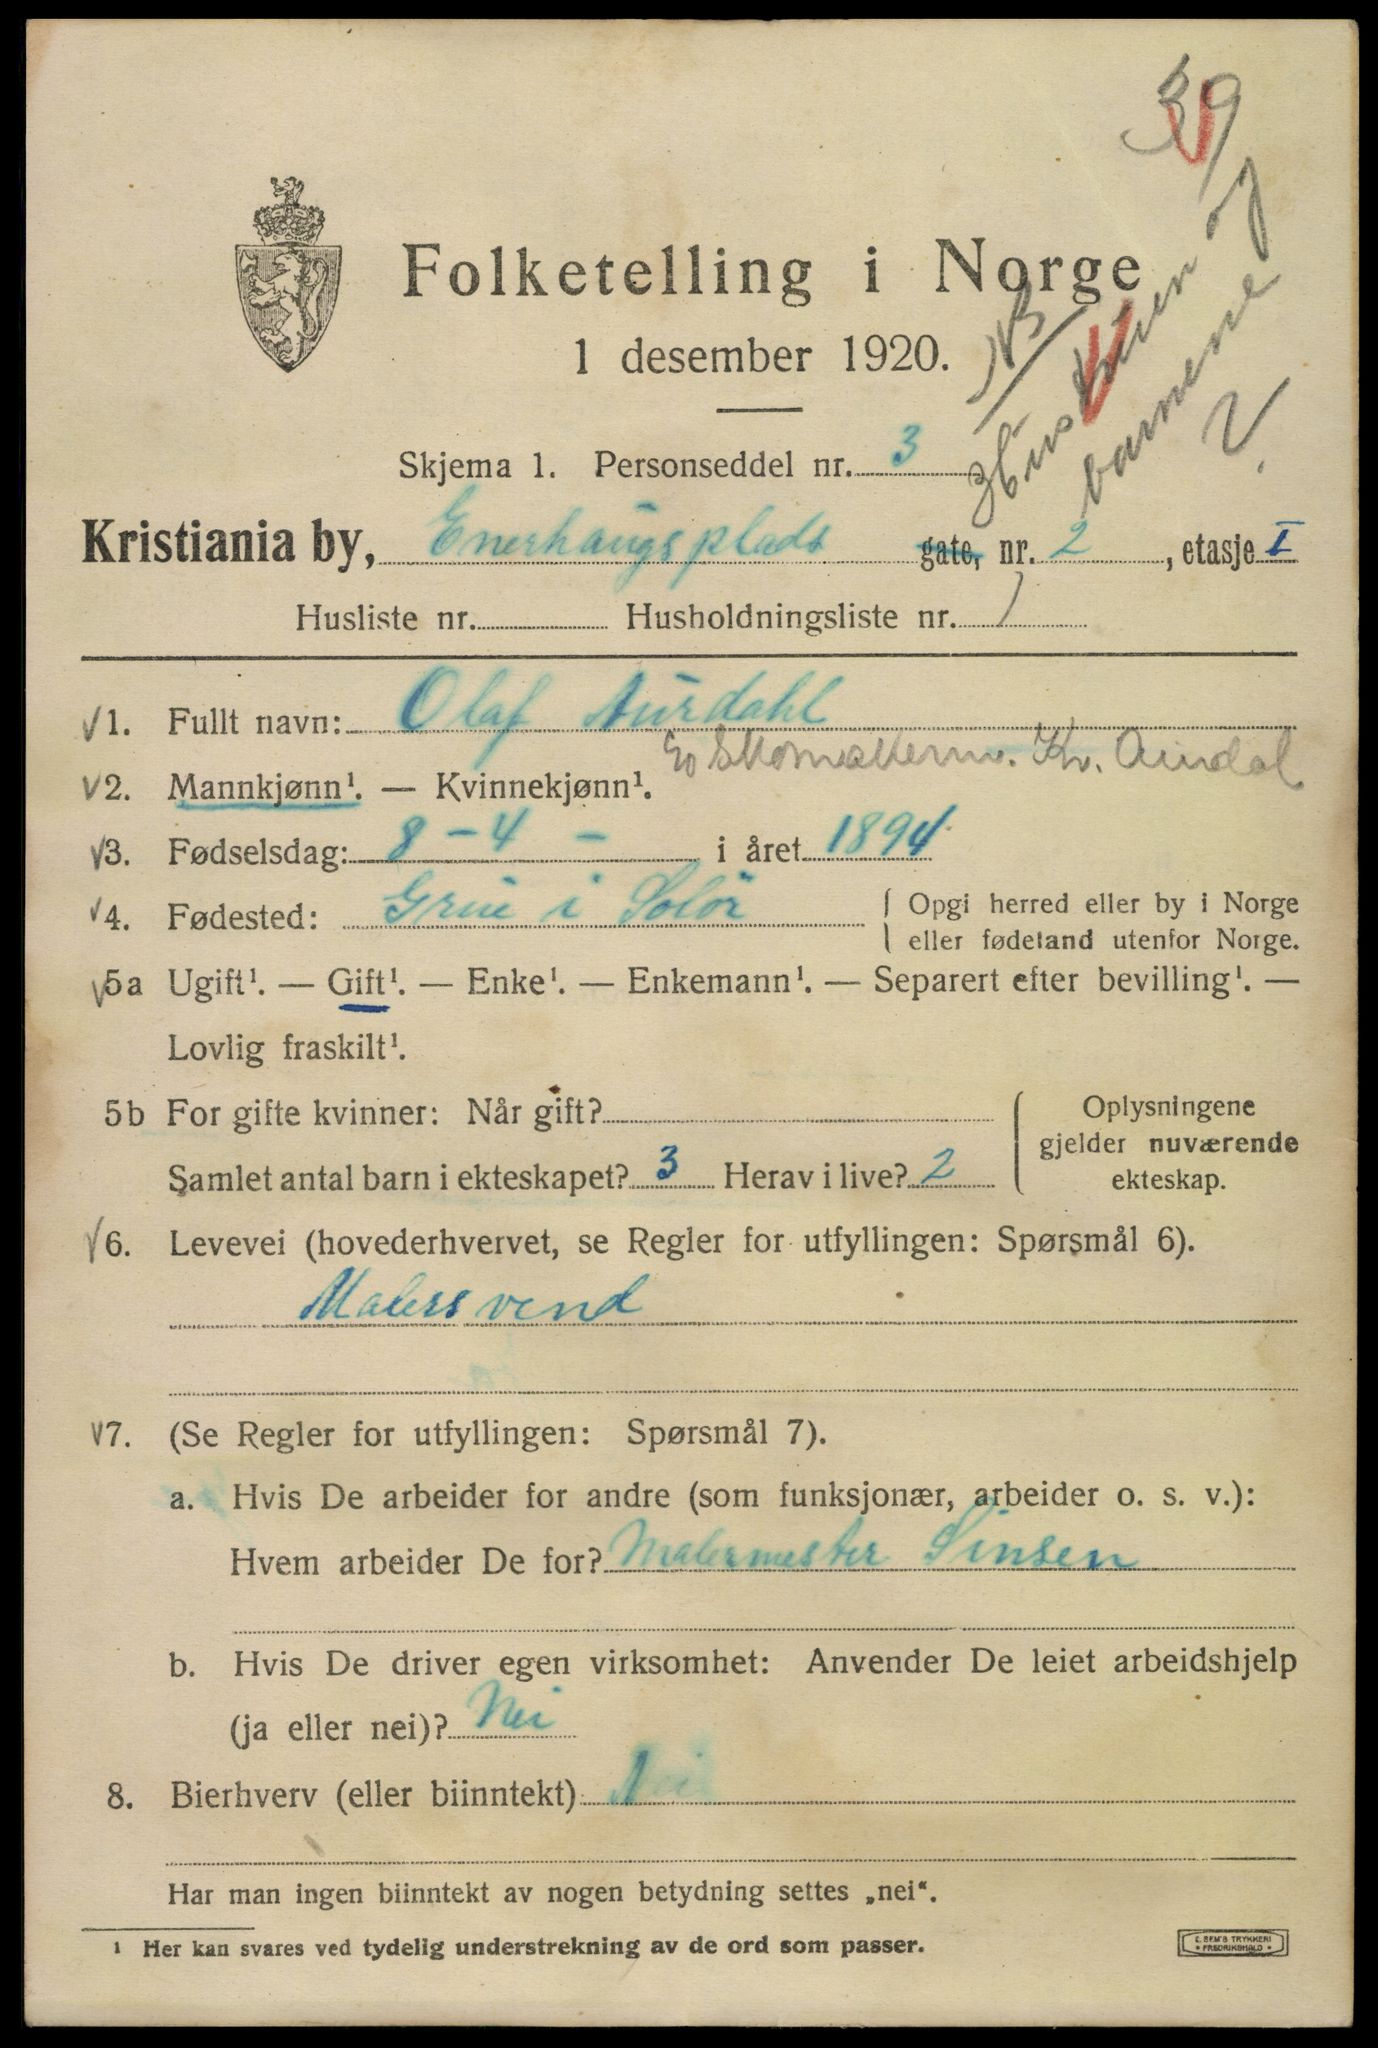 39
Folketelling i Norge
1 desember 1920.
NB
Hustruen og
barnene
?
Skjema 1. Personseddel nr. 3
Kristiania by, Enerhaugsplads gate, nr. 2, etasje I
Husliste nr. Husholdningsliste nr. 1
√1. Fullt navn: Olaf Aurdahl
Kr. Aurdal
√2. Mannkjønn¹. — Kvinnekjønn¹.
√3. Fødselsdag: 8 – 4 – i året 1894
√4. Fødested: Grue i Solør { Opgi herred eller by i Norge
eller fødeland utenfor Norge.
√5a Ugift¹. — Gift¹. — Enke¹. — Enkemann¹. — Separert efter bevilling¹. —
Lovlig fraskilt¹.
5b For gifte kvinner: Når gift? { Oplysningene
gjelder nuværende
Samlet antal barn i ekteskapet? 3 Herav i live? 2 ekteskap.
√6. Levevei (hovederhvervet, se Regler for utfyllingen: Spørsmål 6).
Malersvend
√7. (Se Regler for utfyllingen: Spørsmål 7).
a. Hvis De arbeider for andre (som funksjonær, arbeider o. s. v.):
Hvem arbeider De for? Malermester Sinsen
b. Hvis De driver egen virksomhet: Anvender De leiet arbeidshjelp
(ja eller nei)? Nei
8. Bierhverv (eller biinntekt) Nei
Har man ingen biinntekt av nogen betydning settes „nei“.
¹ Her kan svares ved tydelig understrekning av de ord som passer.
E. SEM'S TRYKKERI
* FREDRIKSHALD *